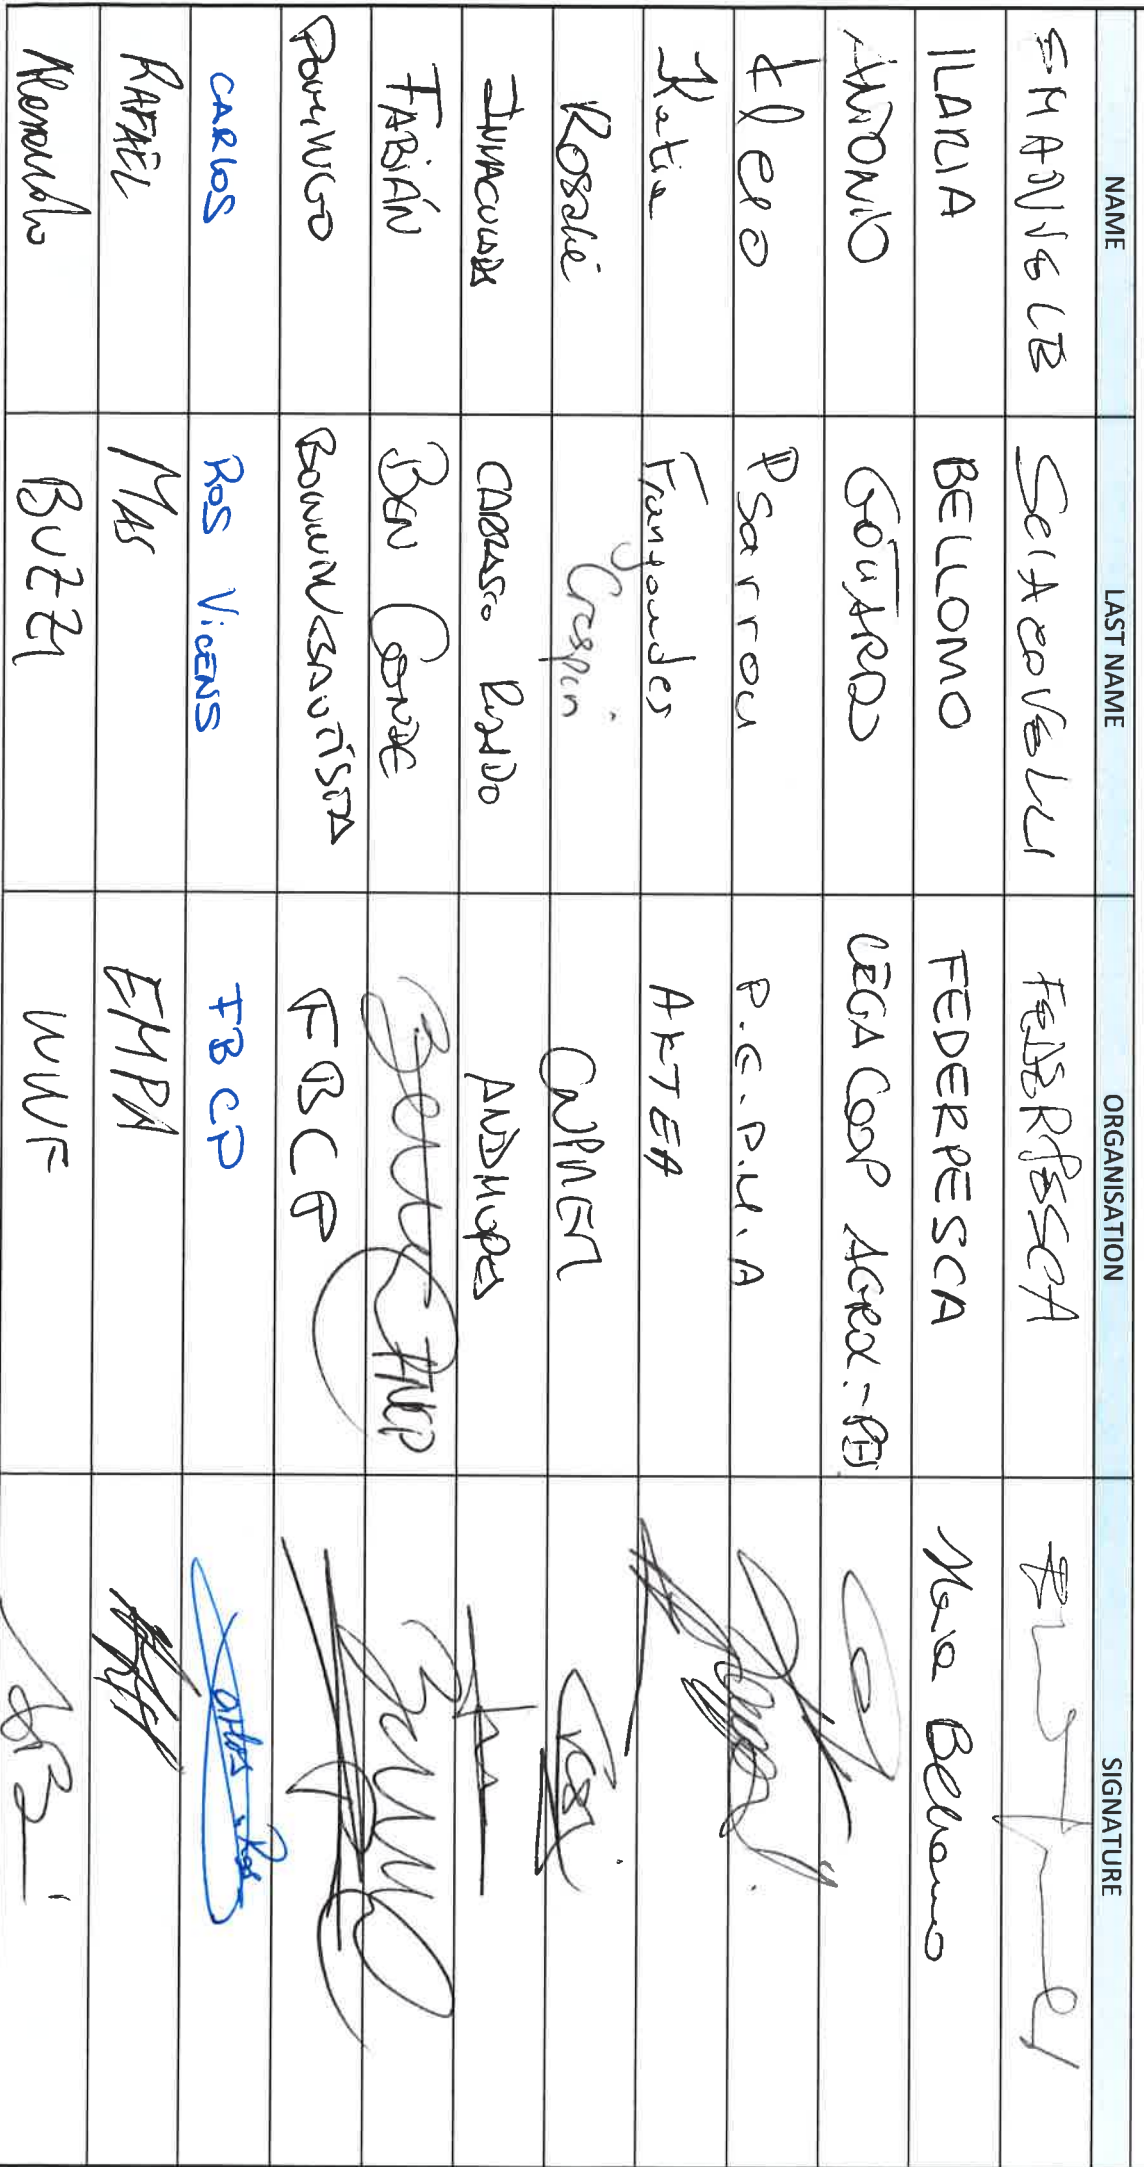 NAME LAST NAME ORGANISATION SIGNATURE
EMANUELE SCIACOVELLI FEDERPESCA
ILARIA BELLOMO FEDERPESCA Ilaria Bellomo
ANTONIO GOTTARDO LEGA COOP AGROAL.-PES
kleo Psarrou P.E.P.M.A
Katia Frangoudes AKTEA
Rosalie Crespin CNPMEM
INMACULADA CARRASCO PULIDO ANDMUPES
FABIÁN BEN CONDE
DOMINGO BONNIN BAUTISTA FBCP
CARLOS ROS VICENS FBCP Carlos Ros
RAFAEL MAS EMPA
Alessandro BUZZI WWF